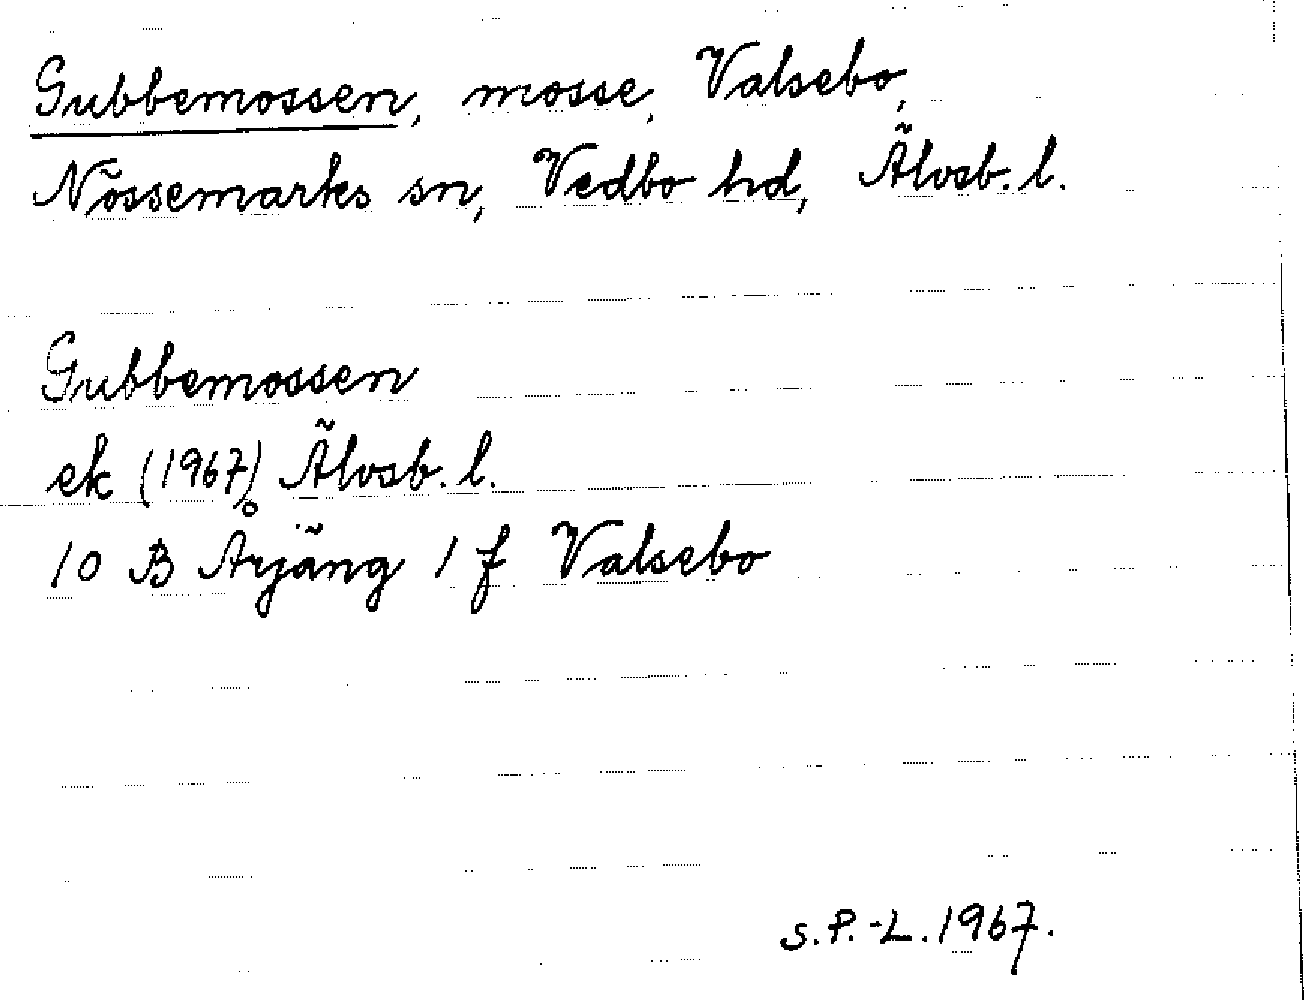 Gubbemossen, mosse, Valsebo,
Nössemarks sn, Vedbo hd, Älvsb. l.
Gubbemossen
ek (1967) Älvsb. l.
10 B Årjäng 1 f Valsebo
S.P.-L. 1967.